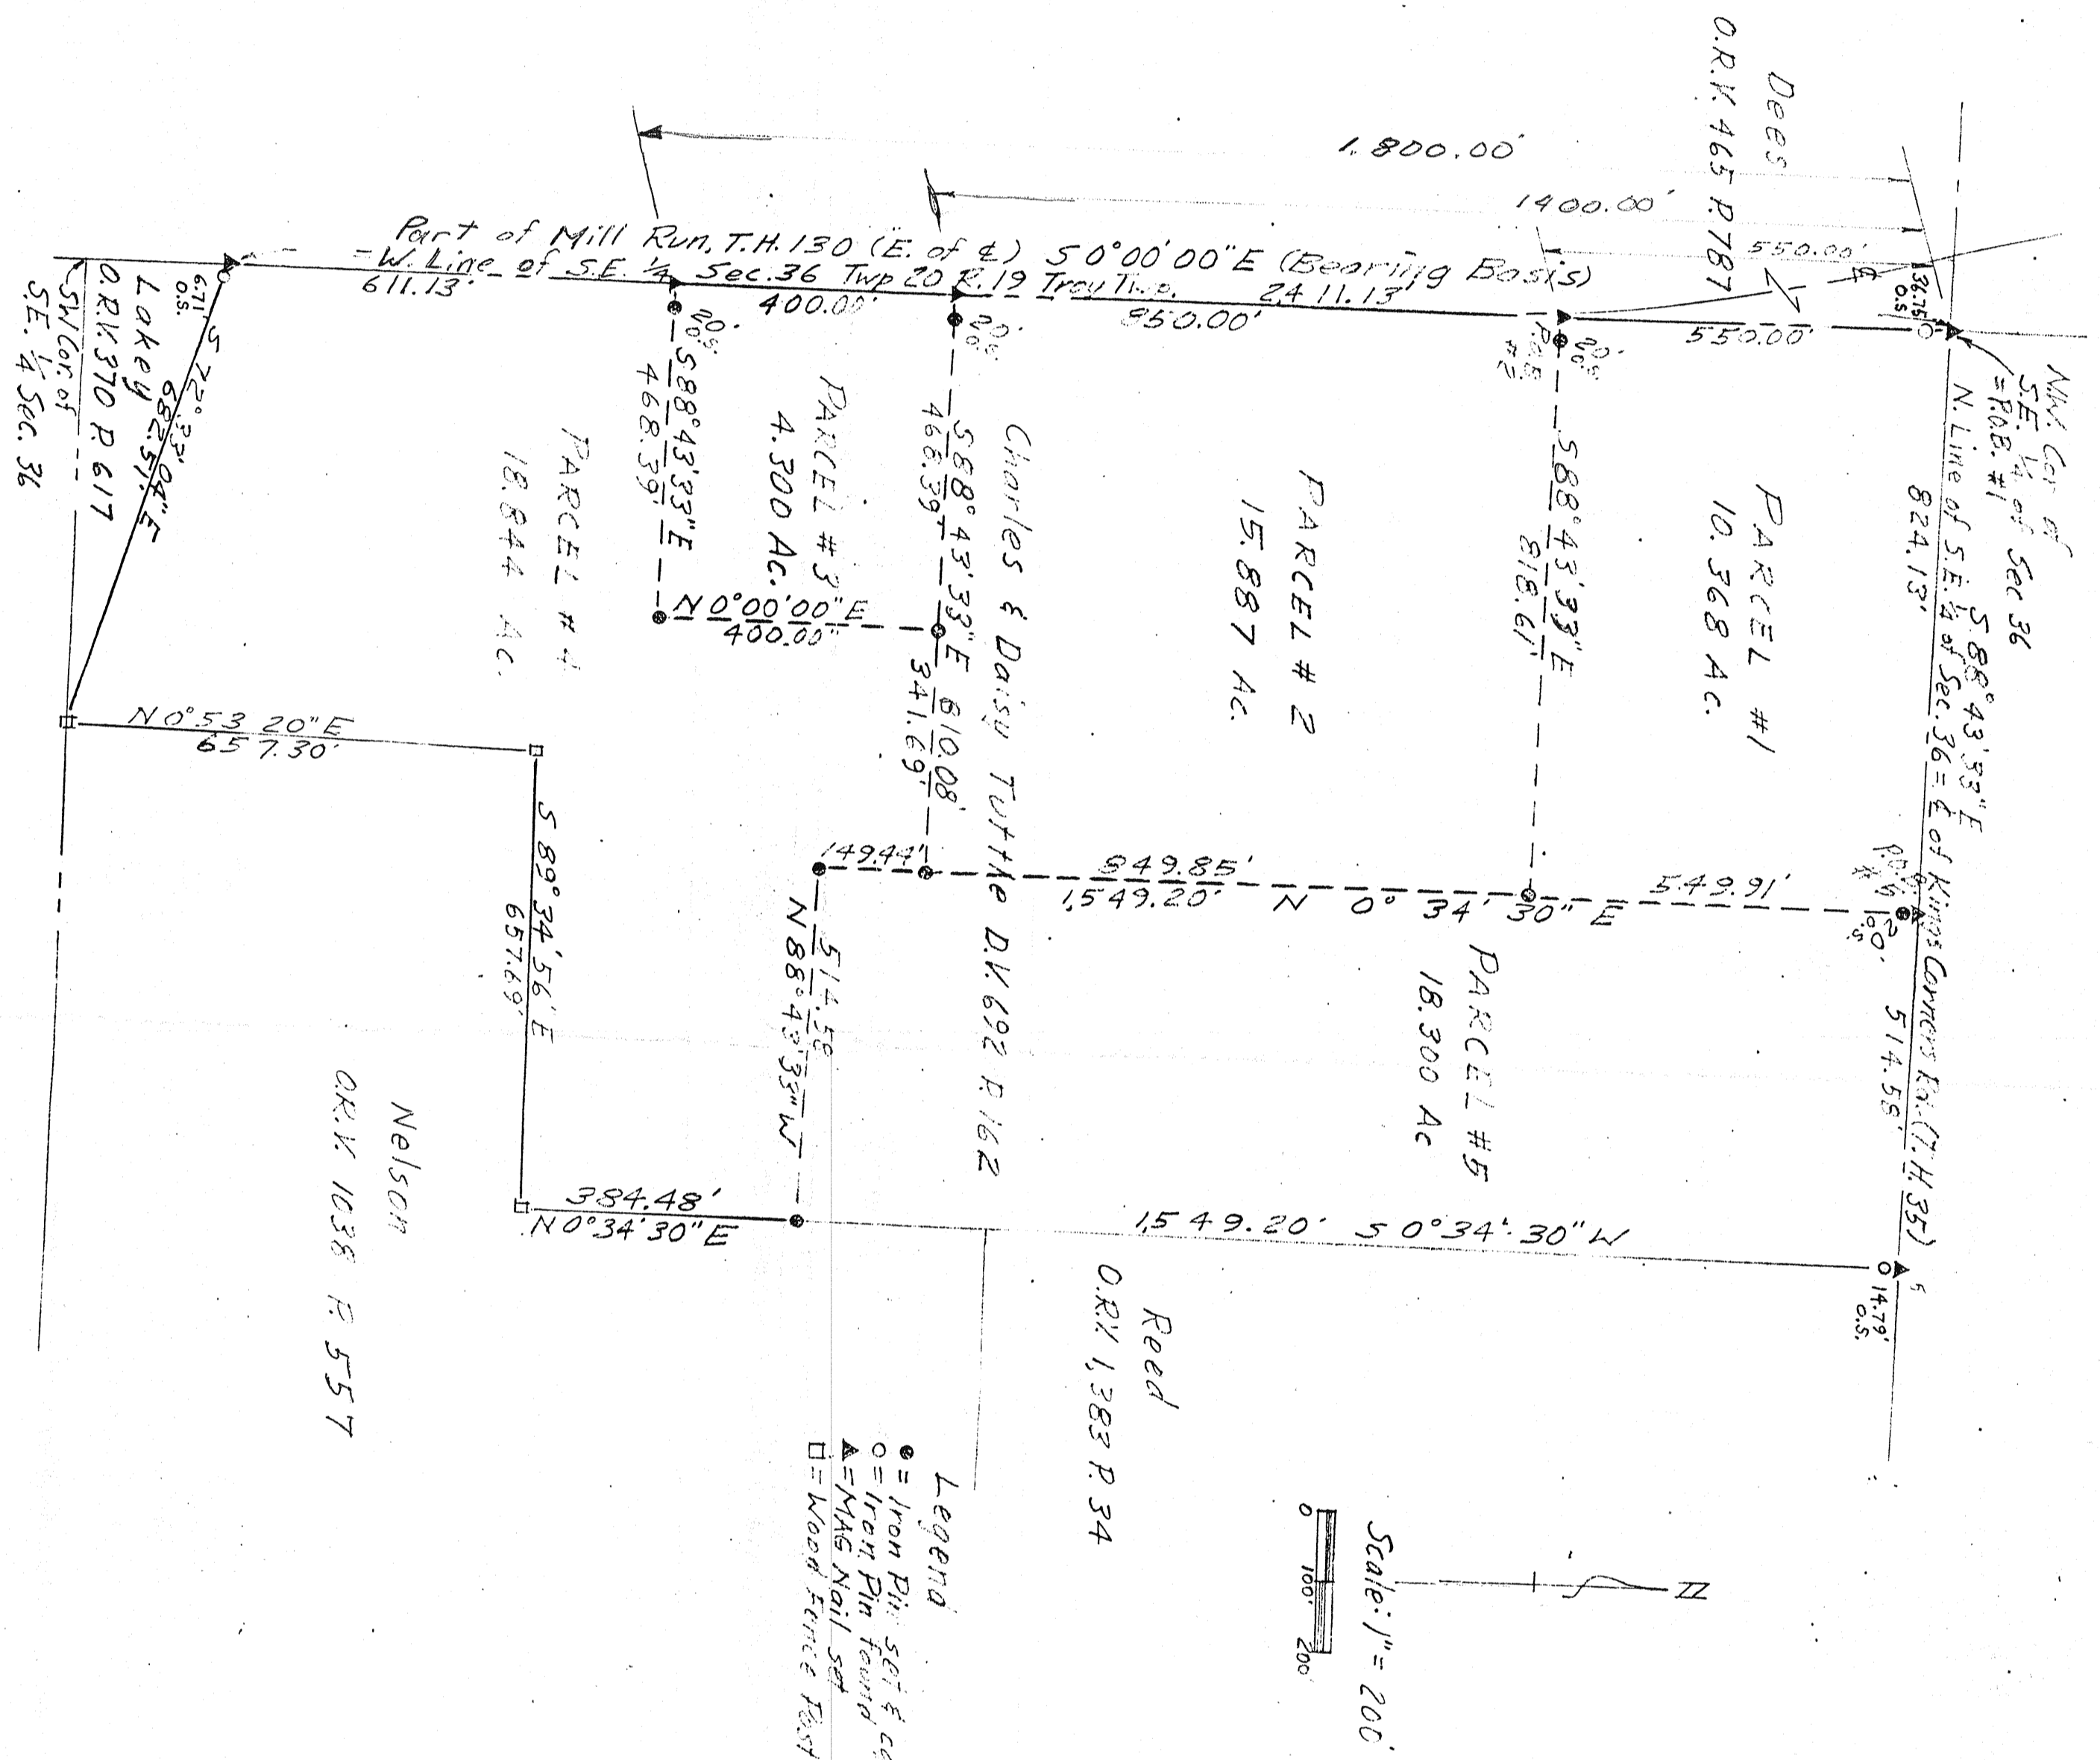 Dees
O.R.V. 465 P. 787
1,800.00'
1400.00'
550.00'
Part of Mill Run, T.H. 130 (E. of ℄) S 0°00'00"E (Bearing Basis)
=W. Line of S.E. 1/4 Sec. 36 Twp 20 R. 19 Troy Twp. 2411.13'
611.13'
400.00'
850.00'
550.00'
℄
36.75'
O.S.
NW. Cor of
S.E. 1/4 of Sec 36
= P.O.B. #1
S 88°43'33"E
N. Line of S.E. 1/4 of Sec. 36 = ℄ of Kings Corners Rd. (T.H. 35)
824.13'
514.58'
P.O.B.
#5
20'
O.S.
14.79'
O.S.
5
PARCEL #1
10.368 Ac.
20'
O.S.
P.O.B.
#2
S 88°43'33"E
818.61'
PARCEL # 2
15.887 Ac.
Charles & Daisy Tuttle D.V. 692 P. 162
20'
O.S.
S 88°43'33"E 810.08'
468.39'
341.69'
PARCEL # 3
4.300 Ac.
20'
O.S.
S 88°43'33"E
468.39'
N 0°00'00"E
400.00"
PARCEL # 4
18.844 Ac.
6.71'
O.S.
S 72°33'04"E
682.51'
Lakey
O.R.V. 370 P. 617
SW Cor. of
S.E. 1/4 Sec. 36
N 0°53 20"E
657.30'
S 89°34'56"E
657.69'
384.48'
N 0°34'30"E
149.44'
849.85'
549.91'
1,549.20' N 0° 34' 30" E
514.58
N 88°43'33"W
PARCEL #5
18.300 Ac
1,549.20' S 0°34'30"W
Nelson
O.R.V. 1038 P. 557
Reed
O.R.V. 1,383 P. 34
Legend
= Iron Pin set &
= Iron Pin found
= MAG Nail set
= Wood Fence Post
Scale: 1" = 200'
0 100' 200'